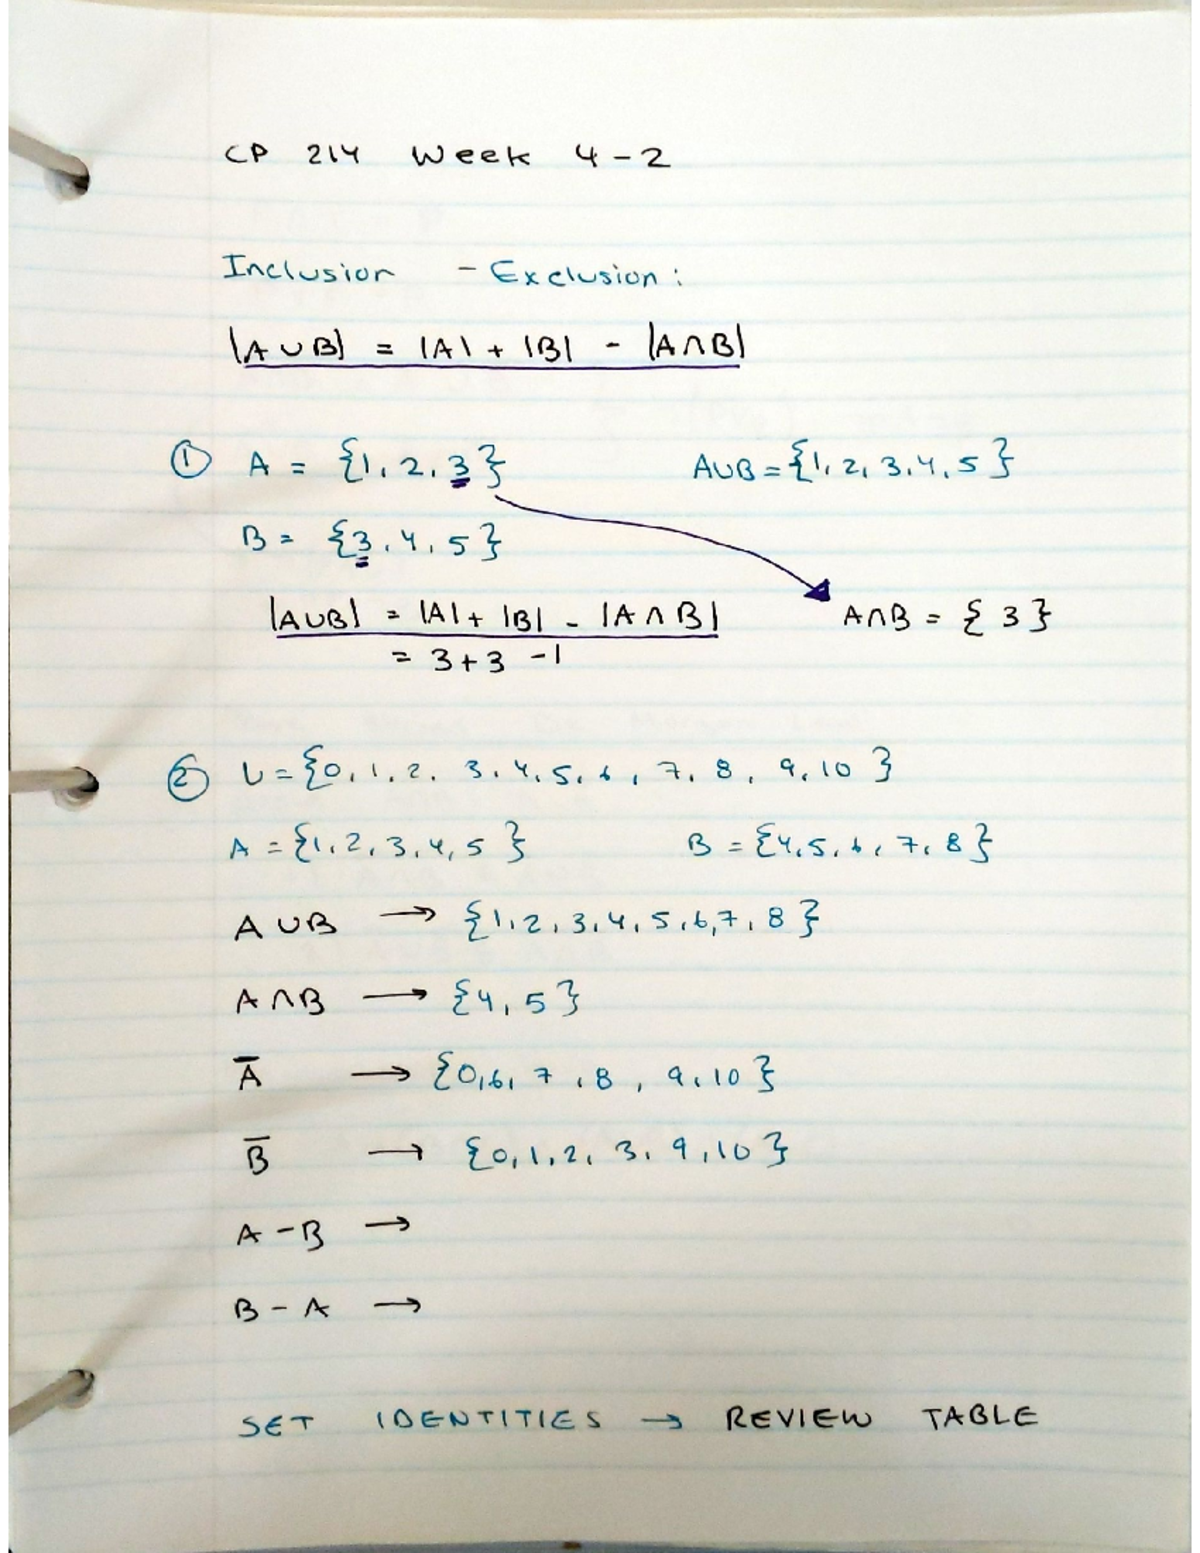 CP 214 Week 4-2
Inclusion - Exclusion:
|A∪B| = |A| + |B| - |A∩B|
① A = {1, 2, 3} A∪B = {1, 2, 3, 4, 5}
B = {3, 4, 5}
|A∪B| = |A| + |B| - |A∩B| A∩B = {3}
= 3+3 -1
② U = {0, 1, 2, 3, 4, 5, 6, 7, 8, 9, 10}
A = {1, 2, 3, 4, 5} B = {4, 5, 6, 7, 8}
A∪B → {1, 2, 3, 4, 5, 6, 7, 8}
A∩B → {4, 5}
A̅ → {0, 6, 7, 8, 9, 10}
B̅ → {0, 1, 2, 3, 9, 10}
A - B →
B - A →
SET IDENTITIES → REVIEW TABLE